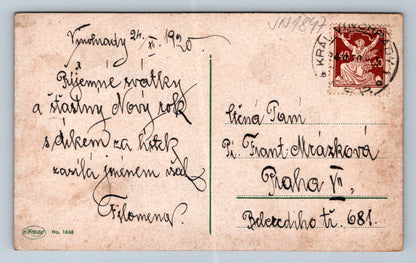 JN1897
Vinohrady 24. XII. 1920
KRÁL. VINOHRADY
Příjemné svátky
a šťastný Nový rok
s díkem za lístek
zasílá jménem
Filomena
Ctěná Paní
Pí. Frant. Mrázková
Praha VII
Belcrediho tř. 681.
No. 1688